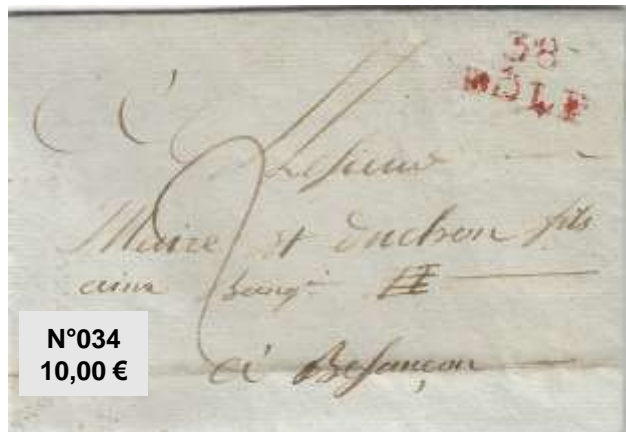 38
DÔLE
Messieurs
Maire et Duchon fils
ainé banq.rs
à Besançon
N°034
10,00 €